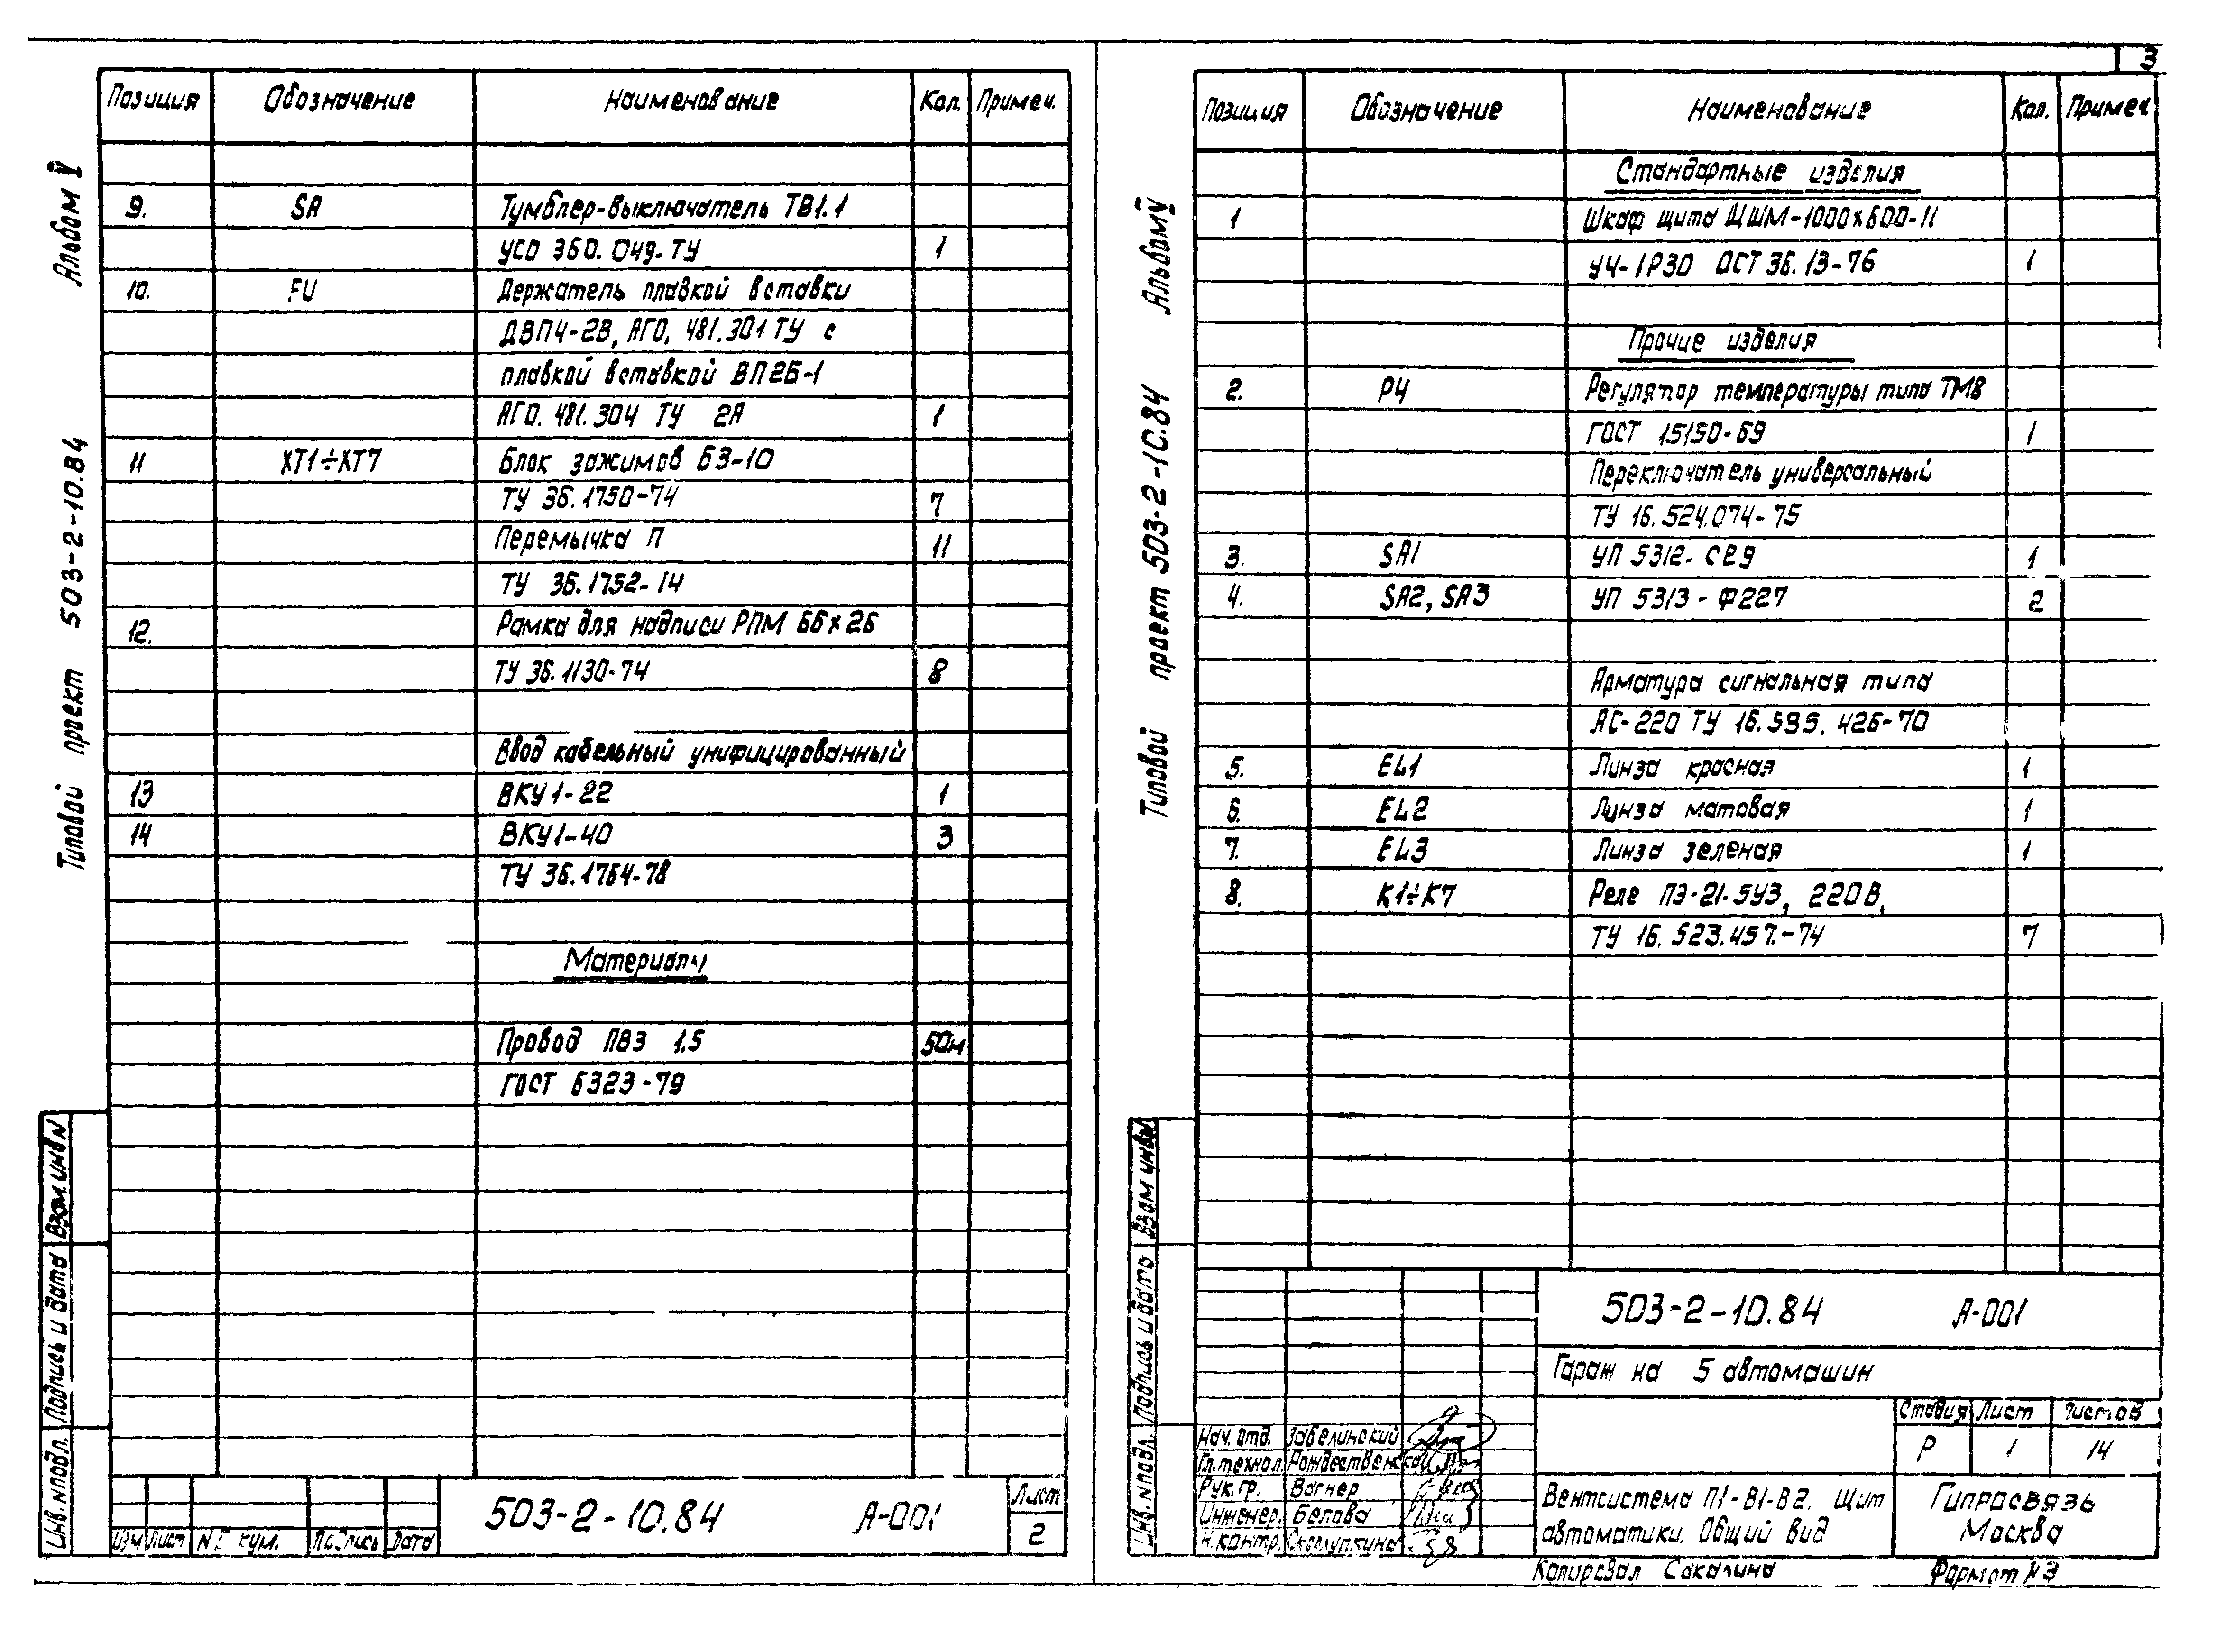 3
Альбом V
Типовой проект 503-2-10.84
Позиция Обозначение Наименование Кол. Примеч.
9. SA Тумблер-выключатель ТВ1.1
УСО 360.049-ТУ 1
10. FU Держатель плавкой вставки
ДВП4-2В, АГО, 481.301 ТУ с
плавкой вставкой ВП2Б-1
АГО. 481.304 ТУ 2А 1
11 XT1÷XT7 Блок зажимов БЗ-10
ТУ 36.1750-74 7
Перемычка П 11
ТУ 36.1752-14
12. Рамка для надписи РПМ 66х26
ТУ 36.1130-74 8
Ввод кабельный унифицированный
13 ВКУ1-22 1
14 ВКУ1-40 3
ТУ 36.1764-78
Материалы
Провод ПВ3 1.5 50м
ГОСТ 6323-79
Взам. инв N
Подпись и дата
Инв. N подл.
Изм Лист N кум. Подпись Дата
503-2-10.84 А-001
Лист
2
Альбом V
Типовой проект 503-2-10.84
Позиция Обозначение Наименование Кол. Примеч.
Стандартные изделия
1 Шкаф щита ЩШМ-1000х600-II
У4-IP30 ОСТ 36.13-76 1
Прочие изделия
2. Р4 Регулятор температуры типа ТМ8
ГОСТ 15150-69 1
Переключатель универсальный
ТУ 16.524.074-75
3. SA1 УП 5312-С29 1
4. SA2, SA3 УП 5313-Ф227 2
Арматура сигнальная типа
АС-220 ТУ 16.535.426-70
5. EL1 Линза красная 1
6. EL2 Линза матовая 1
7. EL3 Линза зеленая 1
8. К1÷К7 Реле ПЭ-21-5У3, 220В,
ТУ 16.523.457.-74 7
Взам инв N
Подпись и дата
Инв. N подл.
503-2-10.84 А-001
Гараж на 5 автомашин
Стадия Лист Листов
Р 1 14
Нач. отд. Забелинский
Гл. технол. Рождественский
Рук. гр. Вагнер
Инженер. Белова
Н. контр. Скорлупкина
Вентсистема П1-В1-В2. Щит
автоматики. Общий вид
Гипросвязь
Москва
Копировал Сакалина Формат А3